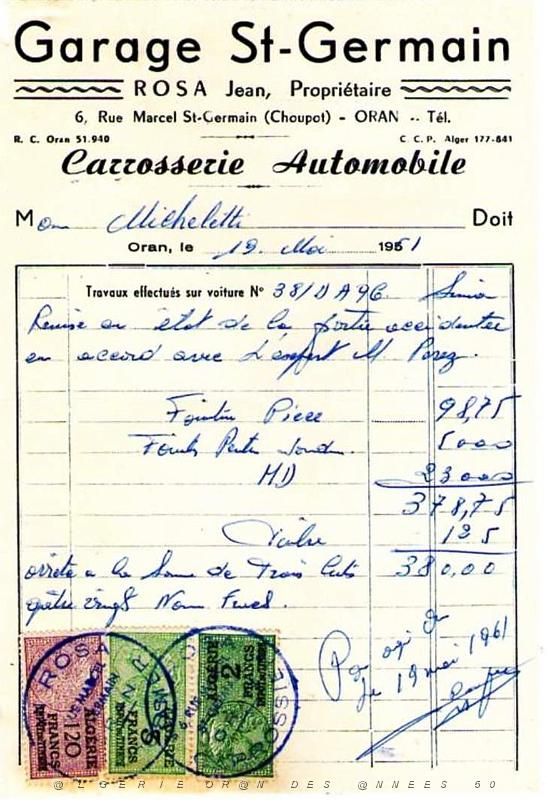 Garage St-Germain
ROSA Jean, Propriétaire
6, Rue Marcel St-Germain (Choupot) - ORAN -- Tél.
R. C. Oran 51.940
C. C. P. Alger 177-841
Carrosserie Automobile
Mon Micheletti Doit
Oran, le 19 Mai 1961
Travaux effectués sur voiture N° 381 DA 9G Simca
Remise en état de la partie accidentée
en accord avec L'expert M Perez.
Piece 98,75
5000
MD 23000
378,75
Timbre 125
arrete a la Some de Trois Cents 380,00
quatre vingt Nouv. Francs.
Pour
le 19 mai 1961
ROSA
ALGERIE
120
FRANCS
ALGERIE
2
@LGERIE OR@N DES @NNEES 50